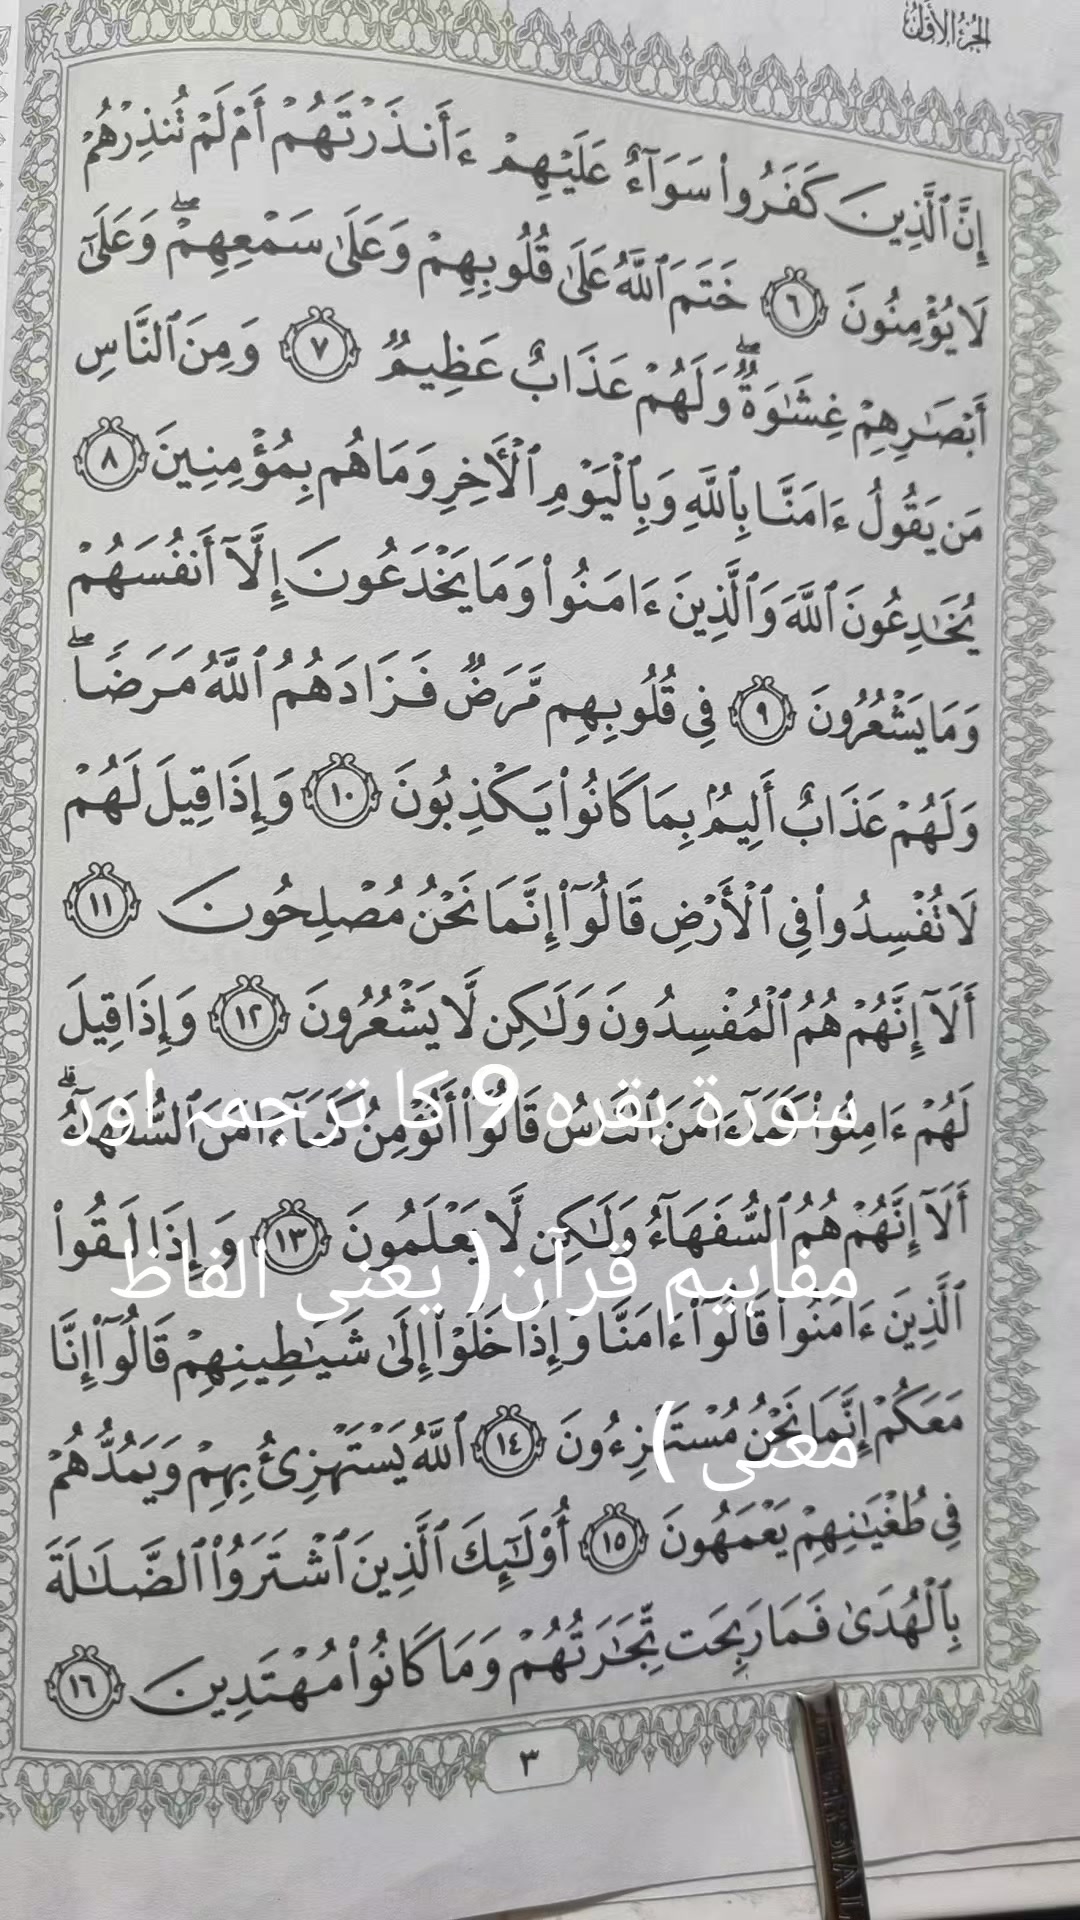 الجزء الأول
إِنَّ ٱلَّذِينَ كَفَرُوا۟ سَوَآءٌ عَلَيْهِمْ ءَأَنذَرْتَهُمْ أَمْ لَمْ تُنذِرْهُمْ
لَا يُؤْمِنُونَ ٦ خَتَمَ ٱللَّهُ عَلَىٰ قُلُوبِهِمْ وَعَلَىٰ سَمْعِهِمْ ۖ وَعَلَىٰٓ
أَبْصَٰرِهِمْ غِشَٰوَةٌ ۖ وَلَهُمْ عَذَابٌ عَظِيمٌ ٧ وَمِنَ ٱلنَّاسِ
مَن يَقُولُ ءَامَنَّا بِٱللَّهِ وَبِٱلْيَوْمِ ٱلْأَخِرِ وَمَا هُم بِمُؤْمِنِينَ ٨
يُخَٰدِعُونَ ٱللَّهَ وَٱلَّذِينَ ءَامَنُوا۟ وَمَا يَخْدَعُونَ إِلَّآ أَنفُسَهُمْ
وَمَا يَشْعُرُونَ ٩ فِى قُلُوبِهِم مَّرَضٌ فَزَادَهُمُ ٱللَّهُ مَرَضًا ۖ
وَلَهُمْ عَذَابٌ أَلِيمٌۢ بِمَا كَانُوا۟ يَكْذِبُونَ ١٠ وَإِذَا قِيلَ لَهُمْ
لَا تُفْسِدُوا۟ فِى ٱلْأَرْضِ قَالُوٓا۟ إِنَّمَا نَحْنُ مُصْلِحُونَ ١١
أَلَآ إِنَّهُمْ هُمُ ٱلْمُفْسِدُونَ وَلَٰكِن لَّا يَشْعُرُونَ ١٢ وَإِذَا قِيلَ
لَهُمْ ءَامِنُوا۟ كَمَآ ءَامَنَ ٱلنَّاسُ قَالُوٓا۟ أَنُؤْمِنُ كَمَآ ءَامَنَ ٱلسُّفَهَآءُ ۗ
سورة بقرہ 9 کا ترجمہ اور
أَلَآ إِنَّهُمْ هُمُ ٱلسُّفَهَآءُ وَلَٰكِن لَّا يَعْلَمُونَ ١٣ وَإِذَا لَقُوا۟
مفاہیم قرآن( یعنی الفاظ
ٱلَّذِينَ ءَامَنُوا۟ قَالُوٓا۟ ءَامَنَّا وَإِذَا خَلَوْا۟ إِلَىٰ شَيَٰطِينِهِمْ قَالُوٓا۟ إِنَّا
مَعَكُمْ إِنَّمَا نَحْنُ مُسْتَهْزِءُونَ ١٤ ٱللَّهُ يَسْتَهْزِئُ بِهِمْ وَيَمُدُّهُمْ
معنی )
فِى طُغْيَٰنِهِمْ يَعْمَهُونَ ١٥ أُو۟لَٰٓئِكَ ٱلَّذِينَ ٱشْتَرَوُا۟ ٱلضَّلَٰلَةَ
بِٱلْهُدَىٰ فَمَا رَبِحَت تِّجَٰرَتُهُمْ وَمَا كَانُوا۟ مُهْتَدِينَ ١٦
٣